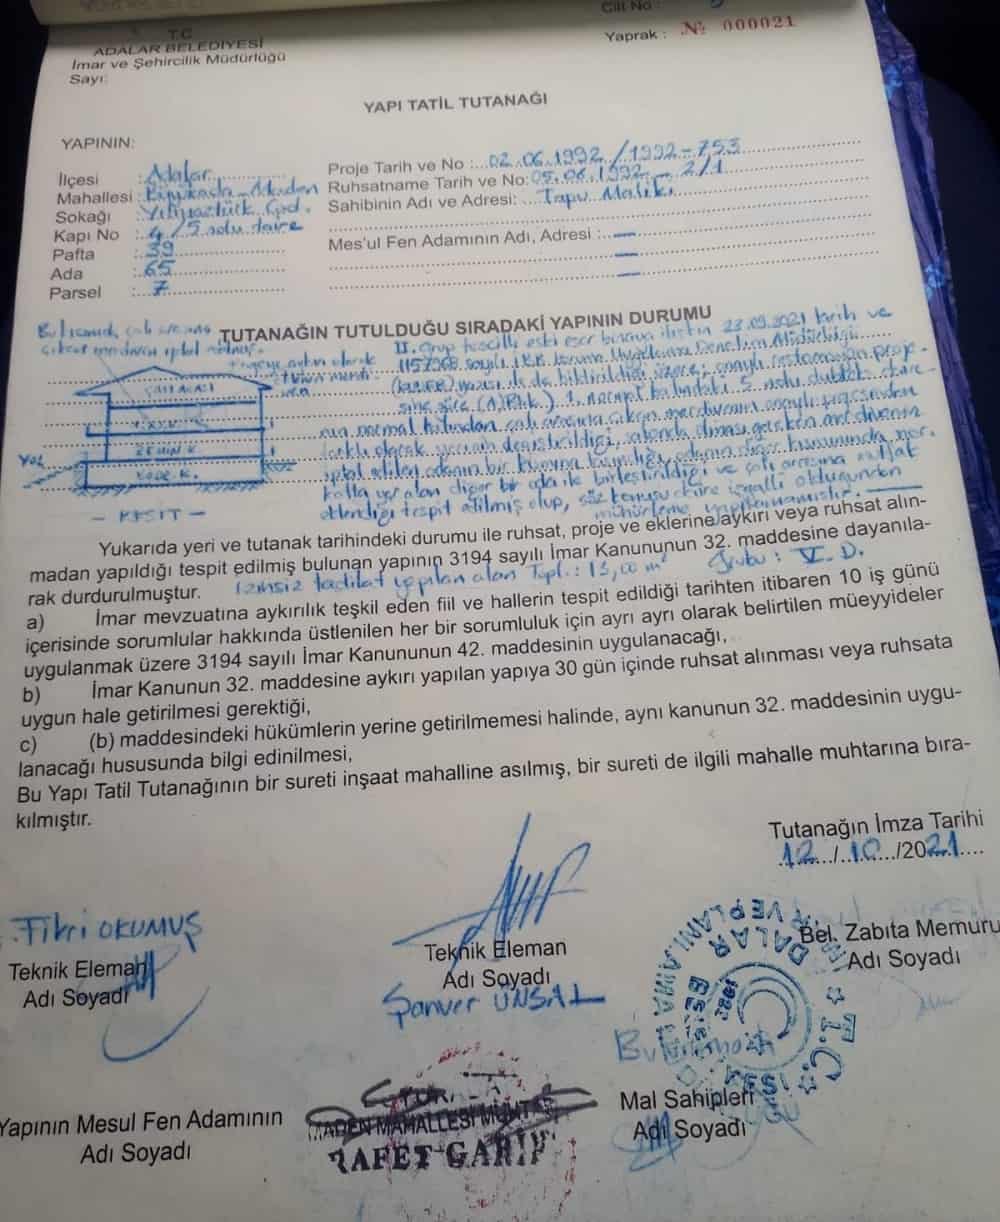 Cilt No :
T.C
Yaprak : № 000021
ADALAR BELEDİYESİ
İmar ve Şehircilik Müdürlüğü
Sayı:
YAPI TATİL TUTANAĞI
YAPININ:
İlçesi : Adalar
Mahallesi : Büyükada-Maden
Sokağı : Yılmaztürk Cad.
Kapı No : 4/5 nolu daire
Pafta : 39
Ada : 65
Parsel : 7
Proje Tarih ve No : 02.06.1992 / 1992-753
Ruhsatname Tarih ve No: 05.06.1992 - 2/1
Sahibinin Adı ve Adresi: Tapu Maliki
Mes'ul Fen Adamının Adı, Adresi : —
—
—
TUTANAĞIN TUTULDUĞU SIRADAKİ YAPININ DURUMU
çatı arasına
çıkan merdiven iptal edilmiş.
II. Grup tescilli eski eser binaya ilişkin 23.09.2021 tarih ve
1157368 sayılı Koruma Uygulama Denetim Müdürlüğü
(KUDEB) yazısı ile de bildirildiği üzere; onaylı restorasyon proje-
sine göre 1. normal kattaki 5 nolu dubleks daire
nin normal katından çatı arasına çıkan merdivenin onaylı projesinden
farklı olarak yerinin değiştirildiği, salonda olması gereken merdivenin
iptal edilen odanın bir kısmına odanın diğer kısmınında nor.
katta yer alan diğer bir oda ile birleştirildiği ve çatı arasına mutfak
eklendiği tespit edilmiş olup, söz konusu daire işgalli olduğundan
mühürleme yapılamamıştır.
ÇATI ARASI
1. KAT
ZEMİN K.
BODR. K.
YOL
- KESİT -
Yukarıda yeri ve tutanak tarihindeki durumu ile ruhsat, proje ve eklerine aykırı veya ruhsat alın-
madan yapıldığı tespit edilmiş bulunan yapının 3194 sayılı İmar Kanununun 32. maddesine dayanıla-
rak durdurulmuştur. İzinsiz tadilat yapılan alan Topl.: 13,00 m² Grubu : V. D.
a) İmar mevzuatına aykırılık teşkil eden fiil ve hallerin tespit edildiği tarihten itibaren 10 iş günü
içerisinde sorumlular hakkında üstlenilen her bir sorumluluk için ayrı ayrı olarak belirtilen müeyyideler
uygulanmak üzere 3194 sayılı İmar Kanununun 42. maddesinin uygulanacağı,
b) İmar Kanunun 32. maddesine aykırı yapılan yapıya 30 gün içinde ruhsat alınması veya ruhsata
uygun hale getirilmesi gerektiği,
c) (b) maddesindeki hükümlerin yerine getirilmemesi halinde, aynı kanunun 32. maddesinin uygu-
lanacağı hususunda bilgi edinilmesi,
Bu Yapı Tatil Tutanağının bir sureti inşaat mahalline asılmış, bir sureti de ilgili mahalle muhtarına bıra-
kılmıştır.
Tutanağın İmza Tarihi
12/10/2021
Fikri OKUMUŞ
Teknik Eleman
Adı Soyadı
Teknik Eleman
Adı Soyadı
Şanver ÜNSAL
Bel. Zabıta Memuru
Adı Soyadı
T.C.
Bulunmadı
Yapının Mesul Fen Adamının
Adı Soyadı
MADEN MAHALLESİ MUHTARI
RAFET GARİP
Mal Sahipleri
Adı Soyadı